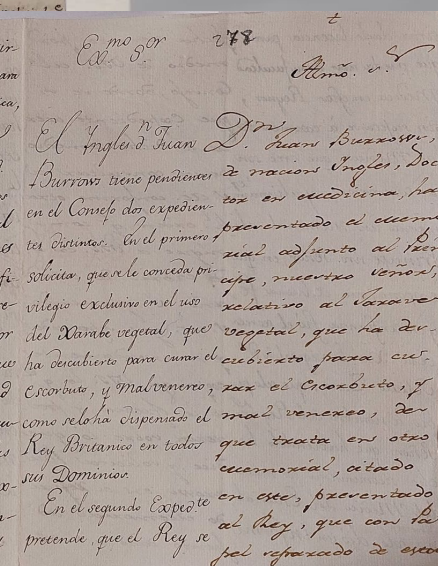 278
Ex.mo S.or
El Ingles d.n Juan
Burrows tiene pendientes
en el Consejo dos expedien-
tes distintos. En el primero
solicita, que se le conceda pri-
vilegio exclusivo en el uso
del Xarabe vegetal, que
ha descubierto para curar el
escorbuto, y mal venereo,
como se lo há dispensado el
Rey Britanico en todos
sus Dominios.
En el segundo Exped.te
pretende, que el Rey se
Yllmo. s.r
D.n Juan Burrows,
de nacion Ingles, Doc
tor en Medicina, ha
presentado el memo
rial adjunto al Prin
cipe, nuestro señor,
relativo al Xarave
vegetal, que ha des-
cubierto para cu-
rar el escorbuto, y
mal venereo, de
que trata en otro
memorial, citado
en este, presentado
al Rey, que con Pa
pel refrasado de esta